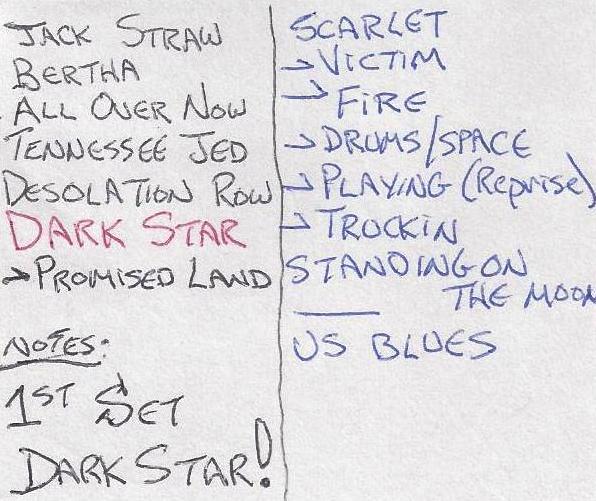 JACK STRAW
BERTHA
ALL OVER NOW
TENNESSEE JED
DESOLATION ROW
DARK STAR
→ PROMISED LAND
NOTES:
1ST SET
DARK STAR!
SCARLET
→ VICTIM
→ FIRE
→ DRUMS/SPACE
→ PLAYING (Reprise)
→ TRUCKIN
STANDING ON
THE MOON
US BLUES